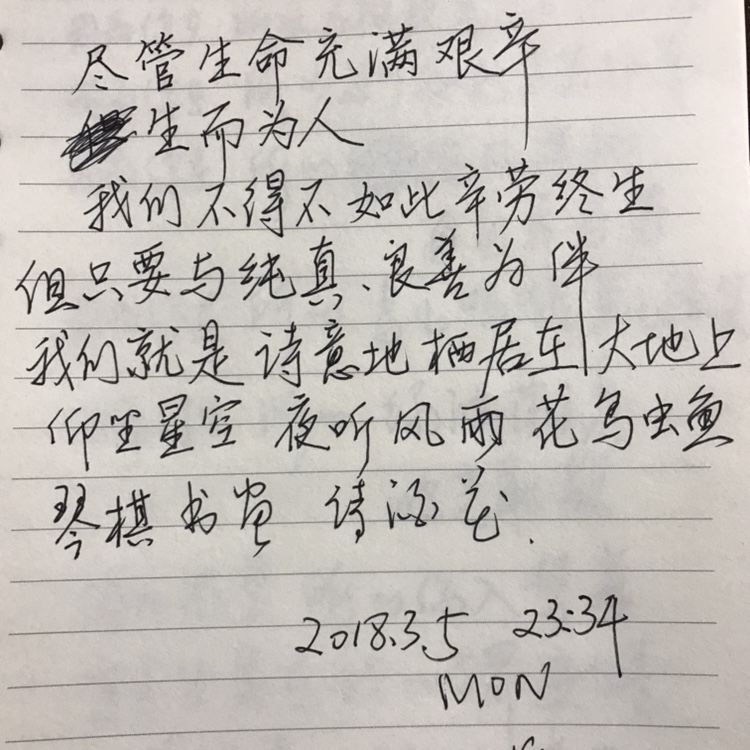 尽管生命充满艰辛
生而为人
我们不得不如此辛劳终生
但只要与纯真、良善为伴
我们就是诗意地栖居在大地上
仰望星空 夜听风雨 花鸟虫鱼
琴棋书画 诗酒花.
2018.3.5 23:34
MON